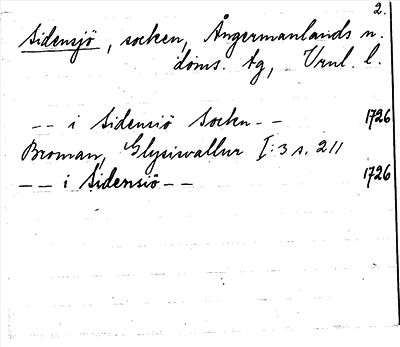 2.
Sidensjö, socken, Ångermanlands n.
doms. tg, Vrnl. l.
-- i Sidensiö Sockn -- 1726
Broman, Glysisvallur I:3 s. 211
-- i Sidensiö -- 1726